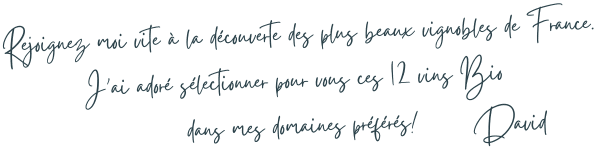 Rejoignez moi vite à la découverte des plus beaux vignobles de France.
J'ai adoré sélectionner pour vous ces 12 vins Bio
dans mes domaines préférés! David